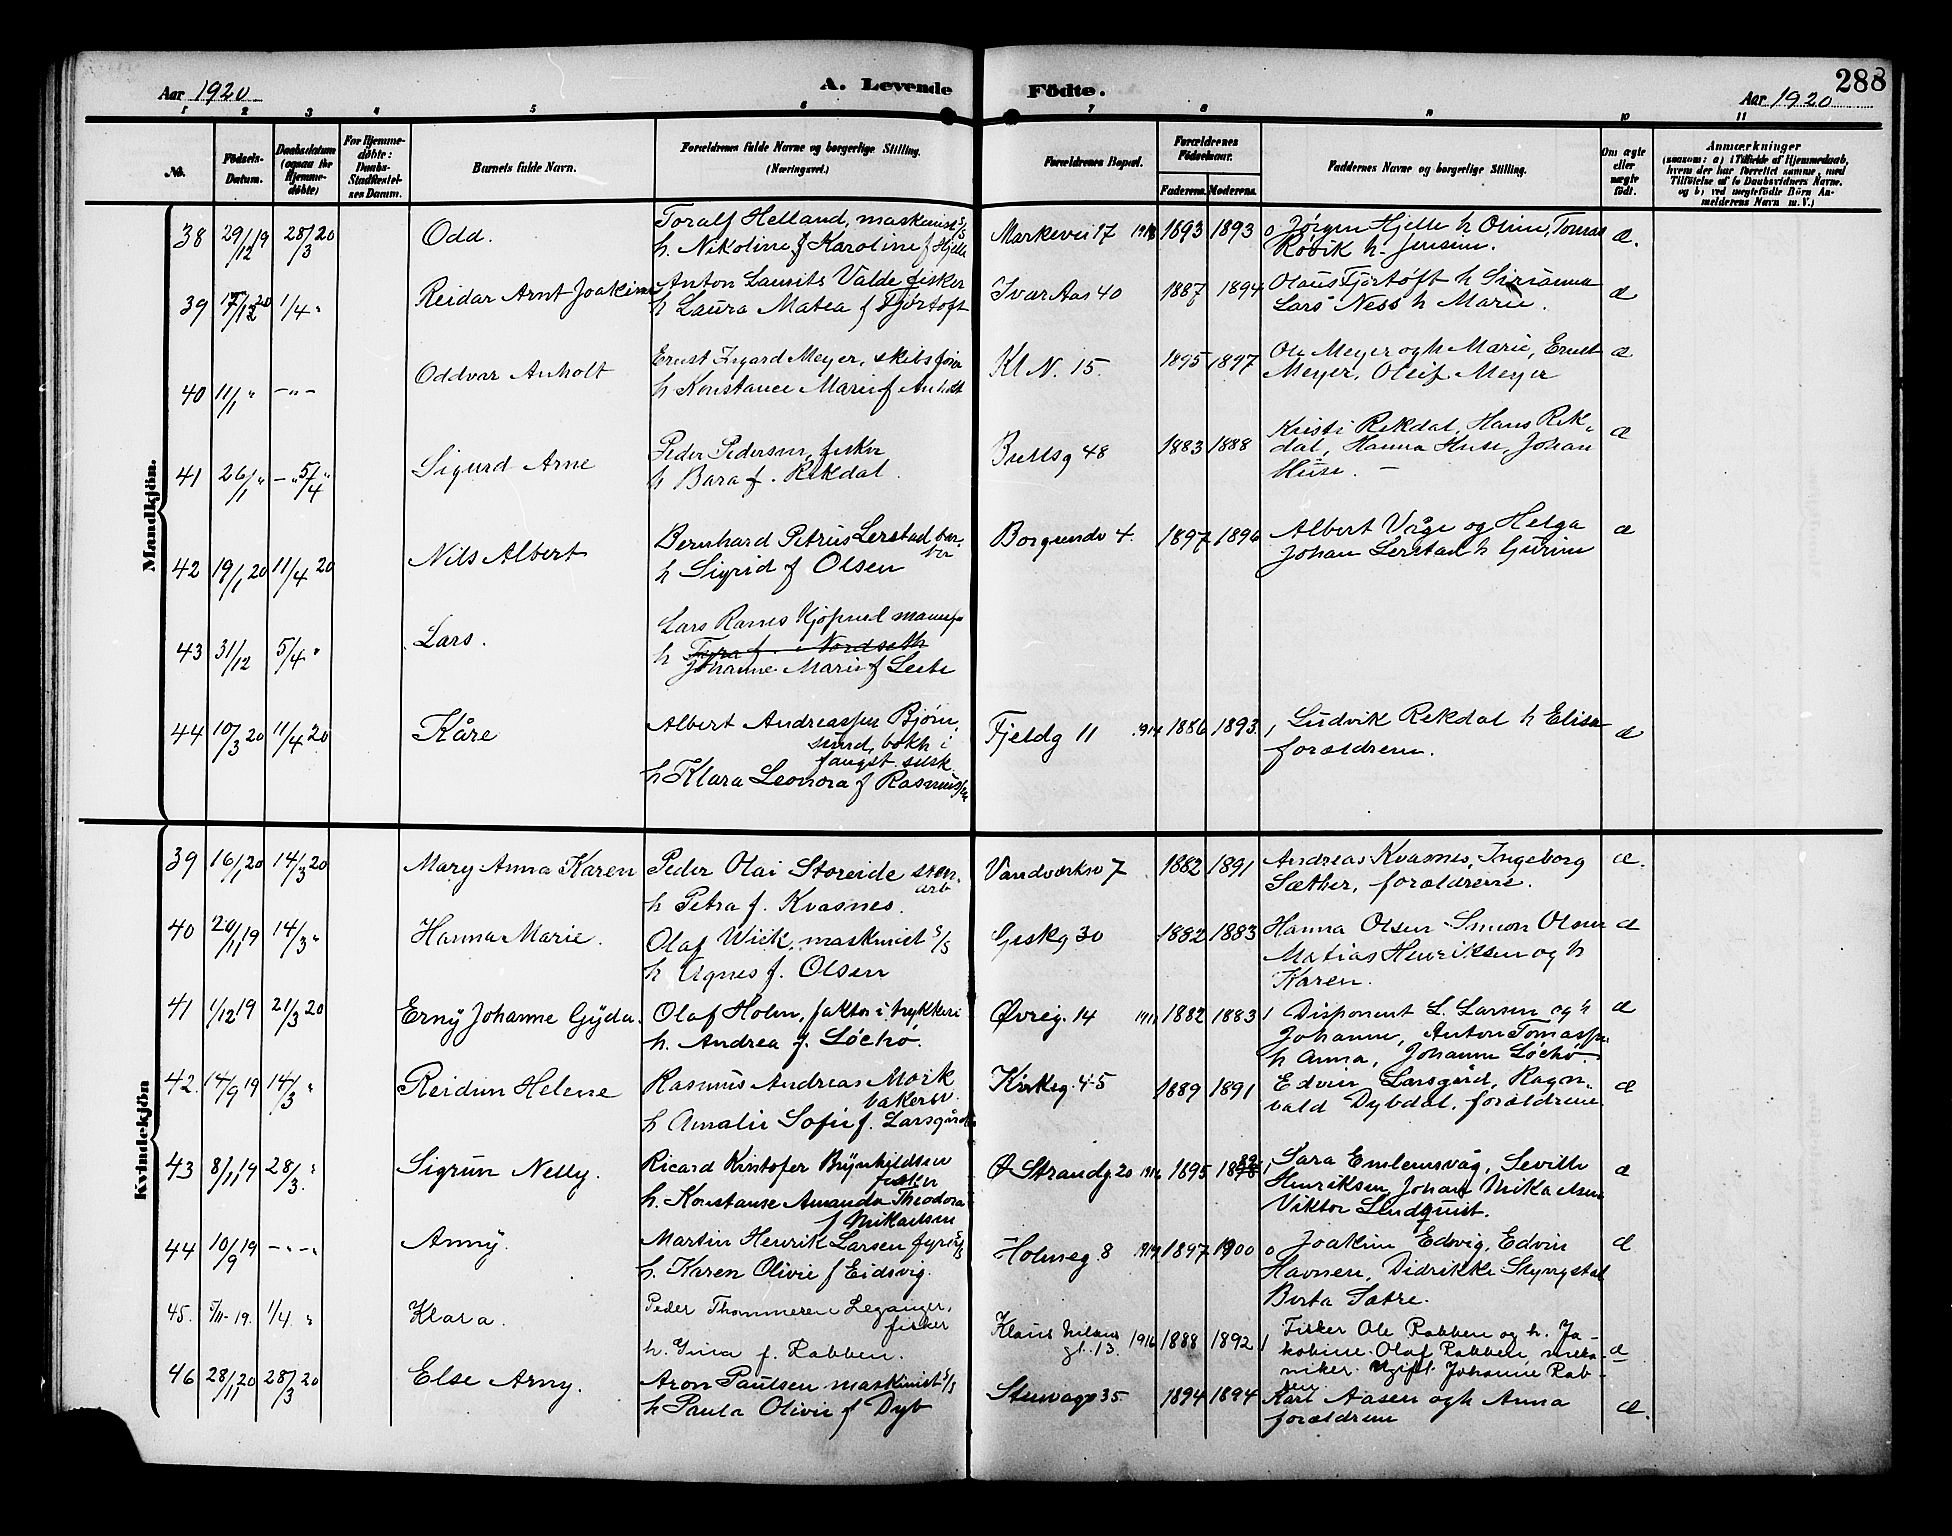 288
Aar 1920
A. Levende Födte.
Aar 1920
1 2 3 4 5 6 7 8 9 10 11
No.
Födsels-Datum.
Daabsdatum (ogsaa for Hjemmedöbte)
For Hjemmedöbte: Daabs-Stadfæstelses Datum.
Barnets fulde Navn.
Forældrenes fulde Navne og borgerlige Stilling. (Næringsvei.)
Forældrenes Bopæl.
Forældrenes Födselsaar.
Faderens. Moderens.
Faddernes Navne og borgerlige Stilling.
Om ægte eller uægte födt.
Anmærkninger
(saasom: a) i Tilfælde af Hjemmedaab, hvem der har forrettet samme, med Tilföielse af to Daabsvidners Navne. og b) ved uægtefödte Börn Anmelderens Navn m. V.)
Mandkjön.
38 29/12 19 28/3 20 Odd.
Toralf Helland, maskinist s/s
h. Nikoline Karoline f Hjelle
Markevei 17 1893 1893 0
Jørgen Hjelle h Oline, Tomas
Røvik h. Jensine.
æ.
39 1/4 " Reidar Arnt Joakim
Anton Laurits Valde fisker
h Laura Matea f Fjørtoft
Ivar Aas 40 1887 1894
Olaus Fjørtoft h
Lars Ness h Marie.
æ
40 11/1 " - " - Oddvar Anholt
Ernst Meyer, skibsfører
h Konstance Marie f Anholt
Kl N. 15. 1895 1897
Ole Meyer og h Marie, Ernst
Meyer, Oleif Meyer
æ
41 26/1 " 5/4 " Sigurd Arne
Peder Pedersen, fisker
h Bara f. Rekdal.
48 1883 1888
Kristi Rekdal, Hans Rek-
dal, Hanna Huse, Johan
Huse. -
æ
42 19/1 20 11/4 20 Nils Albert
Bernhard Petrus Lerstad bar-
ber
h Sigrid f Olsen
Borgundv 4. 1897 1896
Albert Våge og Helga
Johan Lerstad h Gurine
æ
43 31/12 5/4 " Lars.
Lars
h Nordseth
Johanne Marie f Leite
44 10/3 20 11/4 20 Kåre
Albert Andreassen Bjørn-
sund, bokh i
fangst. selsk.
h Klara Leonora f Rasmussen
Fjeldg 11 1914 1886 1893 1
Ludvik Rekdal h Elise
forældrene.
æ
Kvindekjön
39 16/1 20 14/3 20 Mary Anna Karen
Peder Olai Storeide sten-
arb
h Petra f. Kvasnes.
Vandverksv 7 1882 1891
Andreas Kvasnes, Ingeborg
Sæther, forældrene.
æ.
40 20/11 19 14/3 " Hanna Marie.
Olaf Wiik, maskinist s/s
h Agnes f. Olsen
Giskg 30 1882 1883
Hanna Olsen Simon Olsen
Matias Henriksen og h
Karen.
æ
41 1/12 19 21/3 20 Erny Johanne Gyda.
Olaf Holm, faktor i trykkeri
h. Andrea f. Løchø.
Øvreg. 14 1911 1882 1883 1
Disponent L. Larsen og h
Johanne, Anton Tomassen
h Anna, Johanne Løchø.
æ
42. 14/9 19 14/3 " Reidun Helene
Rasmus Andreas Mork
bakersv.
h Amalie Sofie f. Larsgården
Kirkeg. 45 1889 1891
Edvin Larsgård, Ragn-
vald Dybdal, forældrene.
æ
43 8/11 19 28/3 " Sigrun Nelly.
Ricard Kristofer Brynhildsen
h. Konstanse Amanda Theodora
f Mikaelsen
Ø Strandg. 20 1916 1895 1
Sara Emlemsvåg, Seville
Henriksen, Johan Mikaelsen
Viktor Lindquist.
æ
44 10/9 19 - " - Anny.
Martin Henrik Larsen fyrb s/s
h. Karen Olivie f Eidsvig.
Holmeg 8 1919 1897 1900 0
Joakim Edsvig, Edvin
Havnen, Didrikke
Berta Sætre.
æ
45. 7/11-19. 1/4. " Klara.
Peder Leganger,
fisker
h. Gina f. Rabben.
Klaus Nilsens
gt. 13. 1916 1888 1892 1
Fisker Ole Rabben og h. Ja-
kobine. Olaf Rabben meka-
niker. Ugift Johanne Rab-
ben
æ
46 28/11 20 28/3 20 Else Arny.
Aron Paulsen maskinist s/s
h Paula Olivie f Dyb
Stenvågv 35 1894 1894
Karl Aasen og h Anna
forældrene
æ.